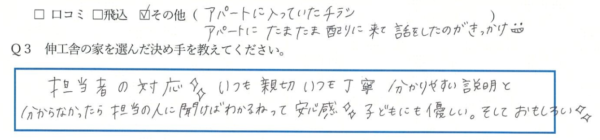 □ 口コミ □飛込 ☑その他（アパートに入っていたチラシ）
アパートに たまたま 配りに 来て 話をしたのがきっかけ
Q3 伸工舎の家を選んだ決め手を教えてください。
担当者の対応 いつも親切 いつも丁寧 分かりやすい説明と
分からなかったら担当の人に聞けばわかるねって安心感 子どもにも優しい。そしておもしろい